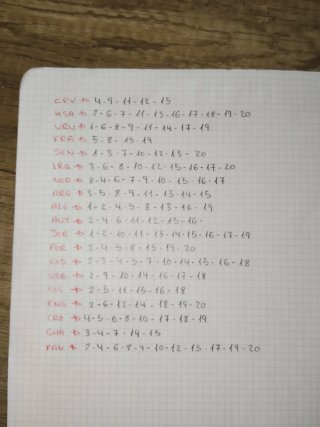 CPV → 4 - 9 - 11 - 12 - 15
KSA → 2 - 6 - 7 - 11 - 13 - 16 - 17 - 18 - 19 - 20
URU → 1 - 6 - 8 - 9 - 11 - 14 - 17 - 19
FRA → 5 - 8 - 15 - 19
SEN → 1 - 3 - 7 - 10 - 12 - 13 - 20
IRQ → 3 - 6 - 8 - 10 - 12 - 15 - 16 - 17 - 20
NOR → 2 - 4 - 6 - 7 - 9 - 10 - 15 - 16 - 17
ARG → 3 - 5 - 8 - 9 - 11 - 13 - 14 - 15
ALG → 1 - 2 - 4 - 5 - 8 - 13 - 16 - 19
AUT → 2 - 4 - 6 - 11 - 12 - 15 - 16 -
JOR → 1 - 2 - 10 - 11 - 13 - 14 - 15 - 16 - 17 - 19
POR → 2 - 4 - 5 - 8 - 15 - 19 - 20
COD → 2 - 3 - 4 - 5 - 7 - 10 - 14 - 15 - 16 - 18
UZB → 2 - 9 - 10 - 14 - 16 - 17 - 18
COL → 2 - 5 - 11 - 15 - 16 - 18
ENG → 2 - 6 - 12 - 14 - 18 - 19 - 20
CRO → 4 - 5 - 6 - 8 - 10 - 17 - 18 - 19
GHA → 3 - 4 - 7 - 14 - 15
PAN → 2 - 4 - 6 - 8 - 9 - 10 - 12 - 15 - 17 - 19 - 20